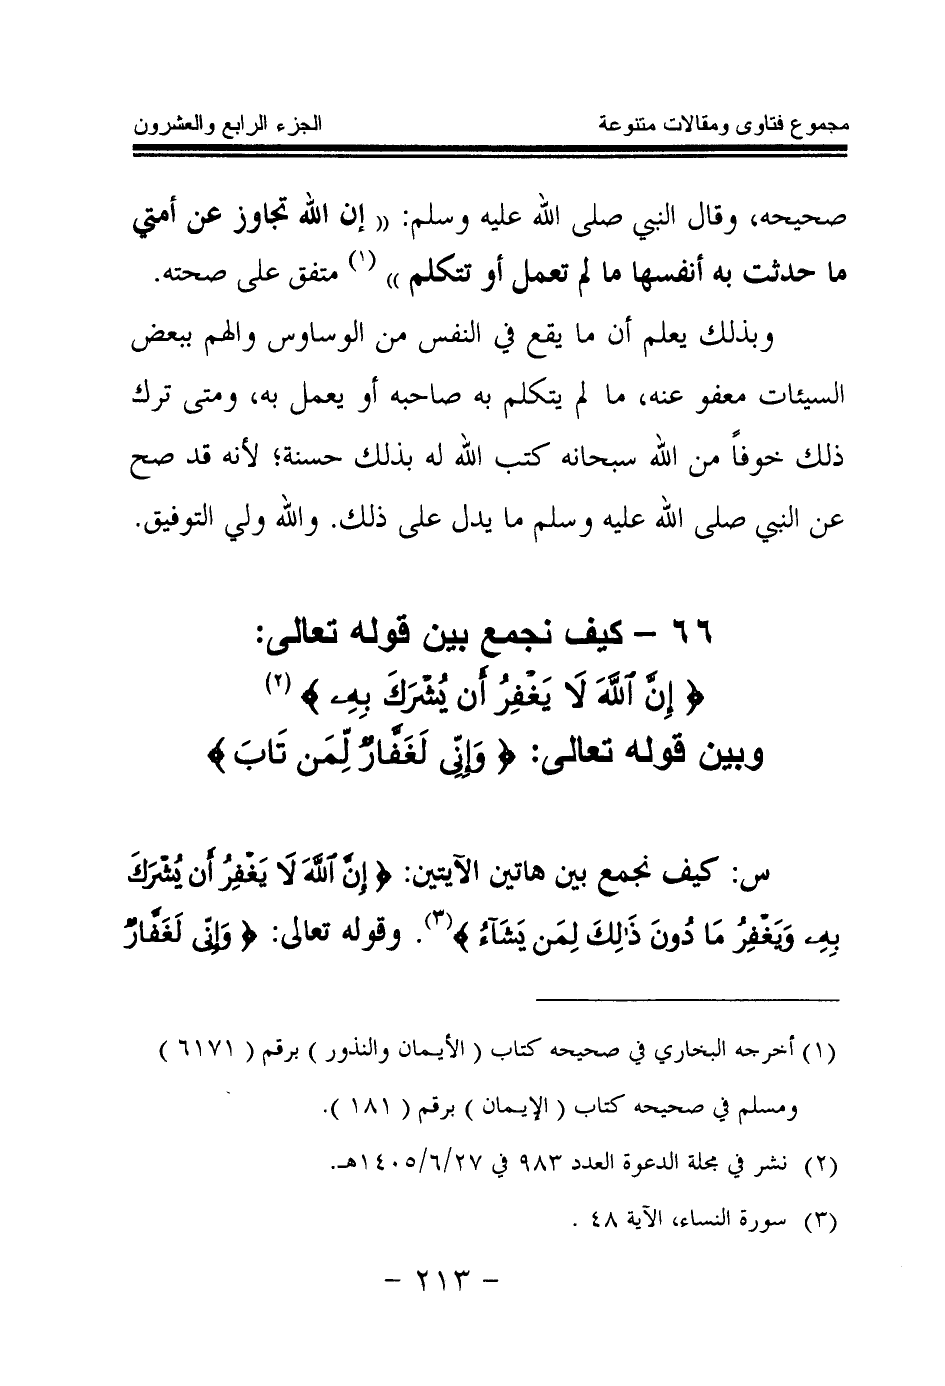 مجموع فتاوى ومقالات متنوعة الجزء الرابع والعشرون
صحيحه، وقال النبي صلى الله عليه وسلم: (( إن الله تجاوز عن أمتي
ما حدثت به أنفسها ما لم تعمل أو تتكلم )) (١) متفق على صحته.
وبذلك يعلم أن ما يقع في النفس من الوساوس والهم ببعض
السيئات معفو عنه، ما لم يتكلم به صاحبه أو يعمل به، ومتى ترك
ذلك خوفاً من الله سبحانه كتب الله له بذلك حسنة؛ لأنه قد صح
عن النبي صلى الله عليه وسلم ما يدل على ذلك. والله ولي التوفيق.
٦٦ – كيف نجمع بين قوله تعالى:
﴿ إِنَّ ٱللَّهَ لَا يَغْفِرُ أَن يُشْرَكَ بِهِۦ ﴾ (٢)
وبين قوله تعالى: ﴿ وَإِنِّى لَغَفَّارٌ لِّمَن تَابَ ﴾
س: كيف نجمع بين هاتين الآيتين: ﴿ إِنَّ ٱللَّهَ لَا يَغْفِرُ أَن يُشْرَكَ
بِهِۦ وَيَغْفِرُ مَا دُونَ ذَٰلِكَ لِمَن يَشَآءُ ﴾(٣). وقوله تعالى: ﴿ وَإِنِّى لَغَفَّارٌ
(١) أخرجه البخاري في صحيحه كتاب ( الأيمان والنذور ) برقم ( ٦١٧١ )
ومسلم في صحيحه كتاب ( الإيمان ) برقم ( ١٨١ ).
(٢) نشر في مجلة الدعوة العدد ٩٨٣ في ١٤٠٥/٦/٢٧هـ.
(٣) سورة النساء، الآية ٤٨ .
– ٢١٣ –